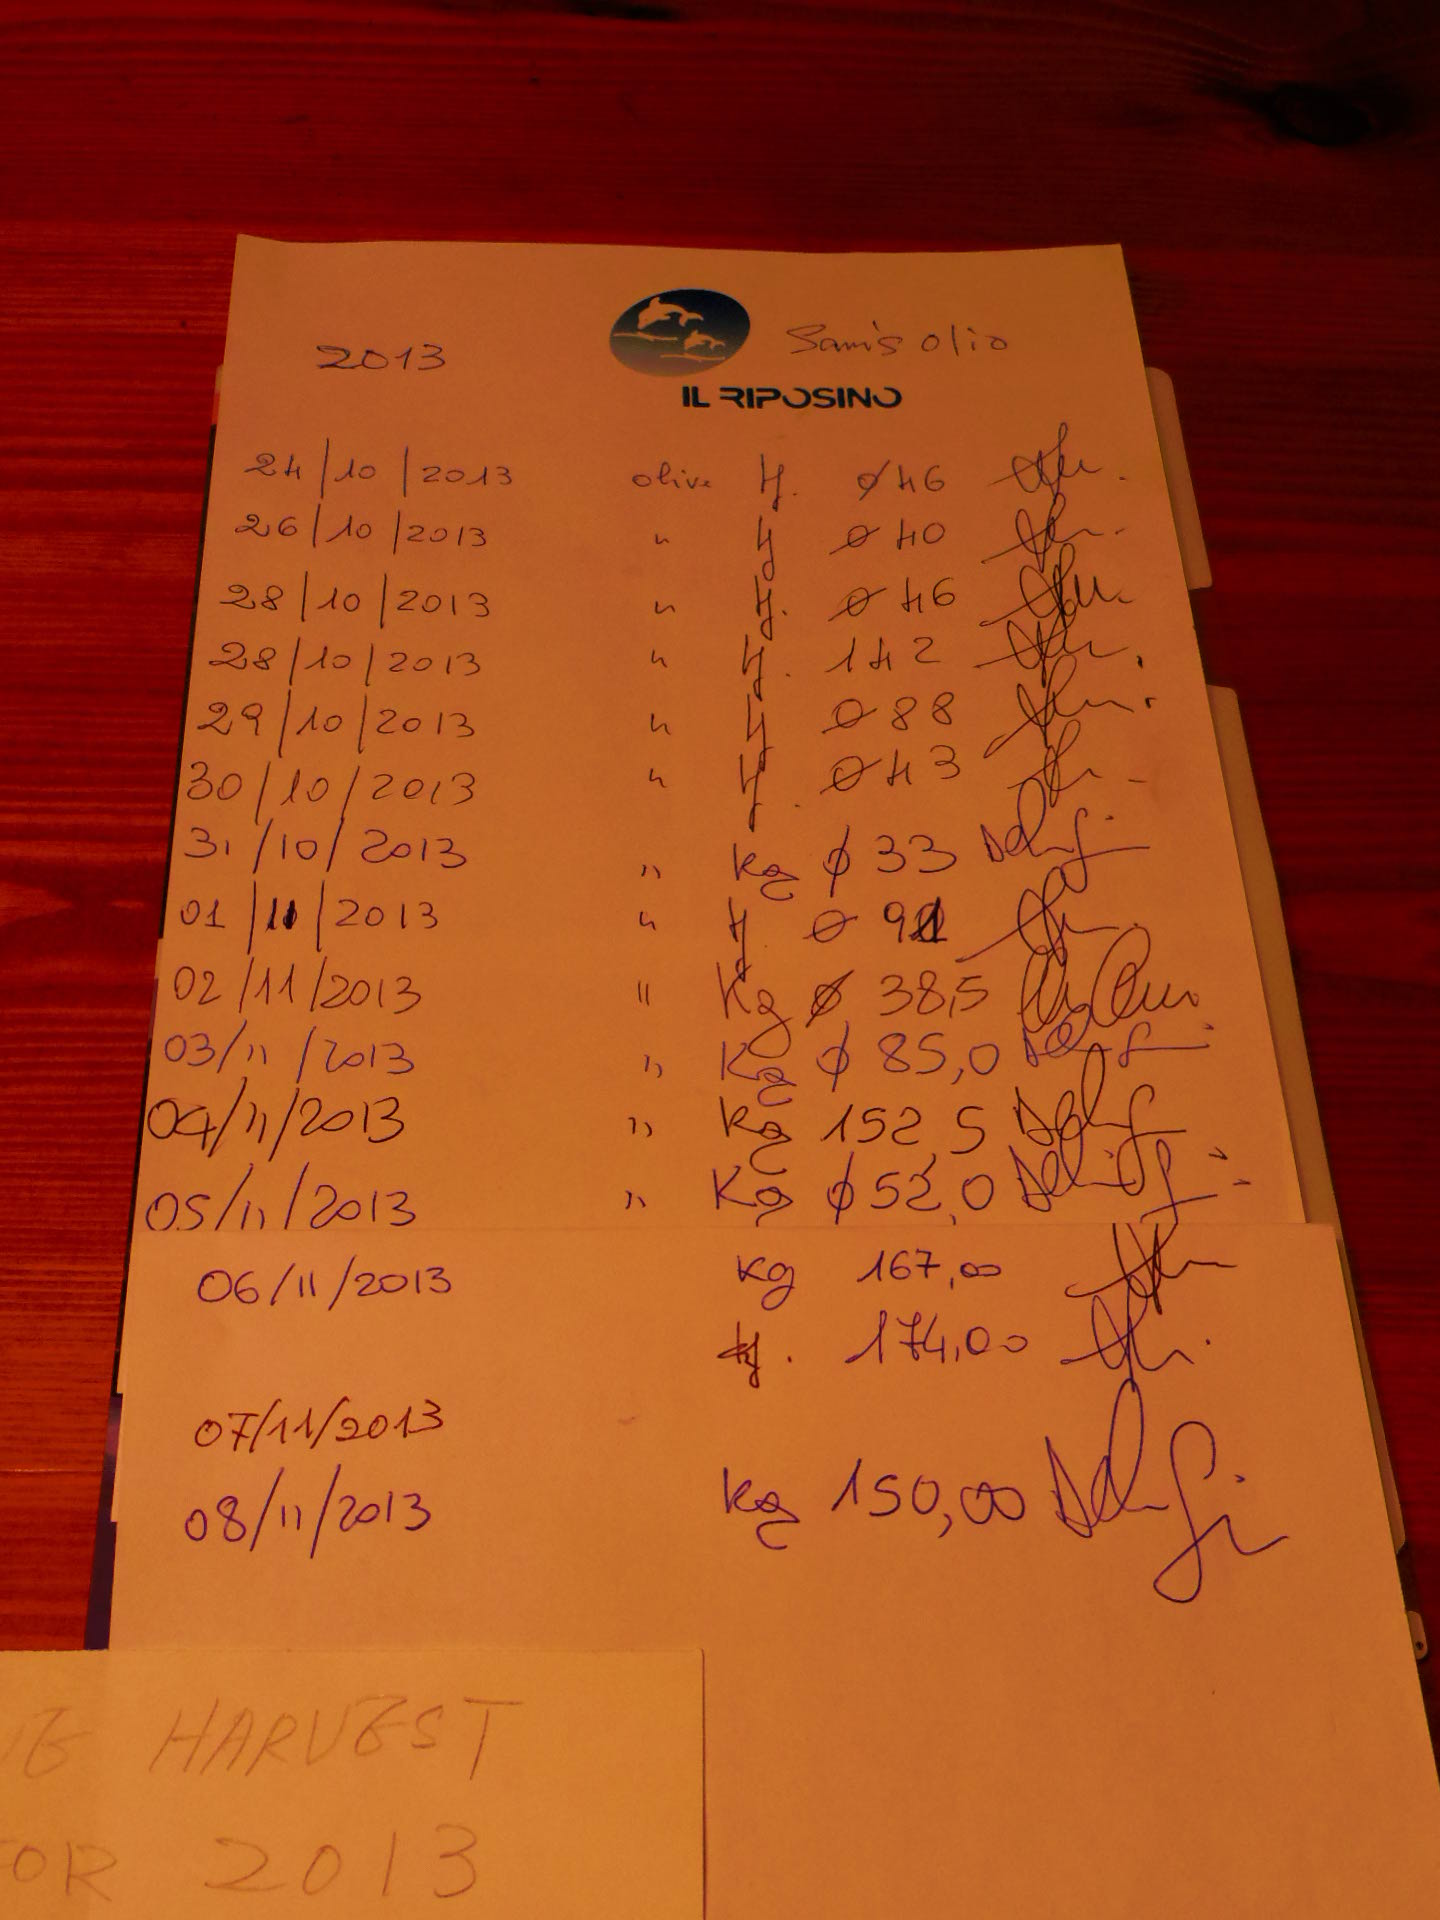 2013 Sam's olio
IL RIPOSINO
24/10/2013 olive kg. 046
26/10/2013 " kg 040
28/10/2013 " kg. 046
28/10/2013 " kg. 142
29/10/2013 " kg 088
30/10/2013 " kg. 043
31/10/2013 " kg 033
01/11/2013 " kg 0
02/11/2013 " Kg 0 38,5
03/11/2013 " Kg 0 85,0
04/11/2013 " Kg 152,5
05/11/2013 " Kg 052,0
06/11/2013 kg 167,00
kg. 174,00
07/11/2013
08/11/2013 kg 150,00
HARVEST
FOR 2013